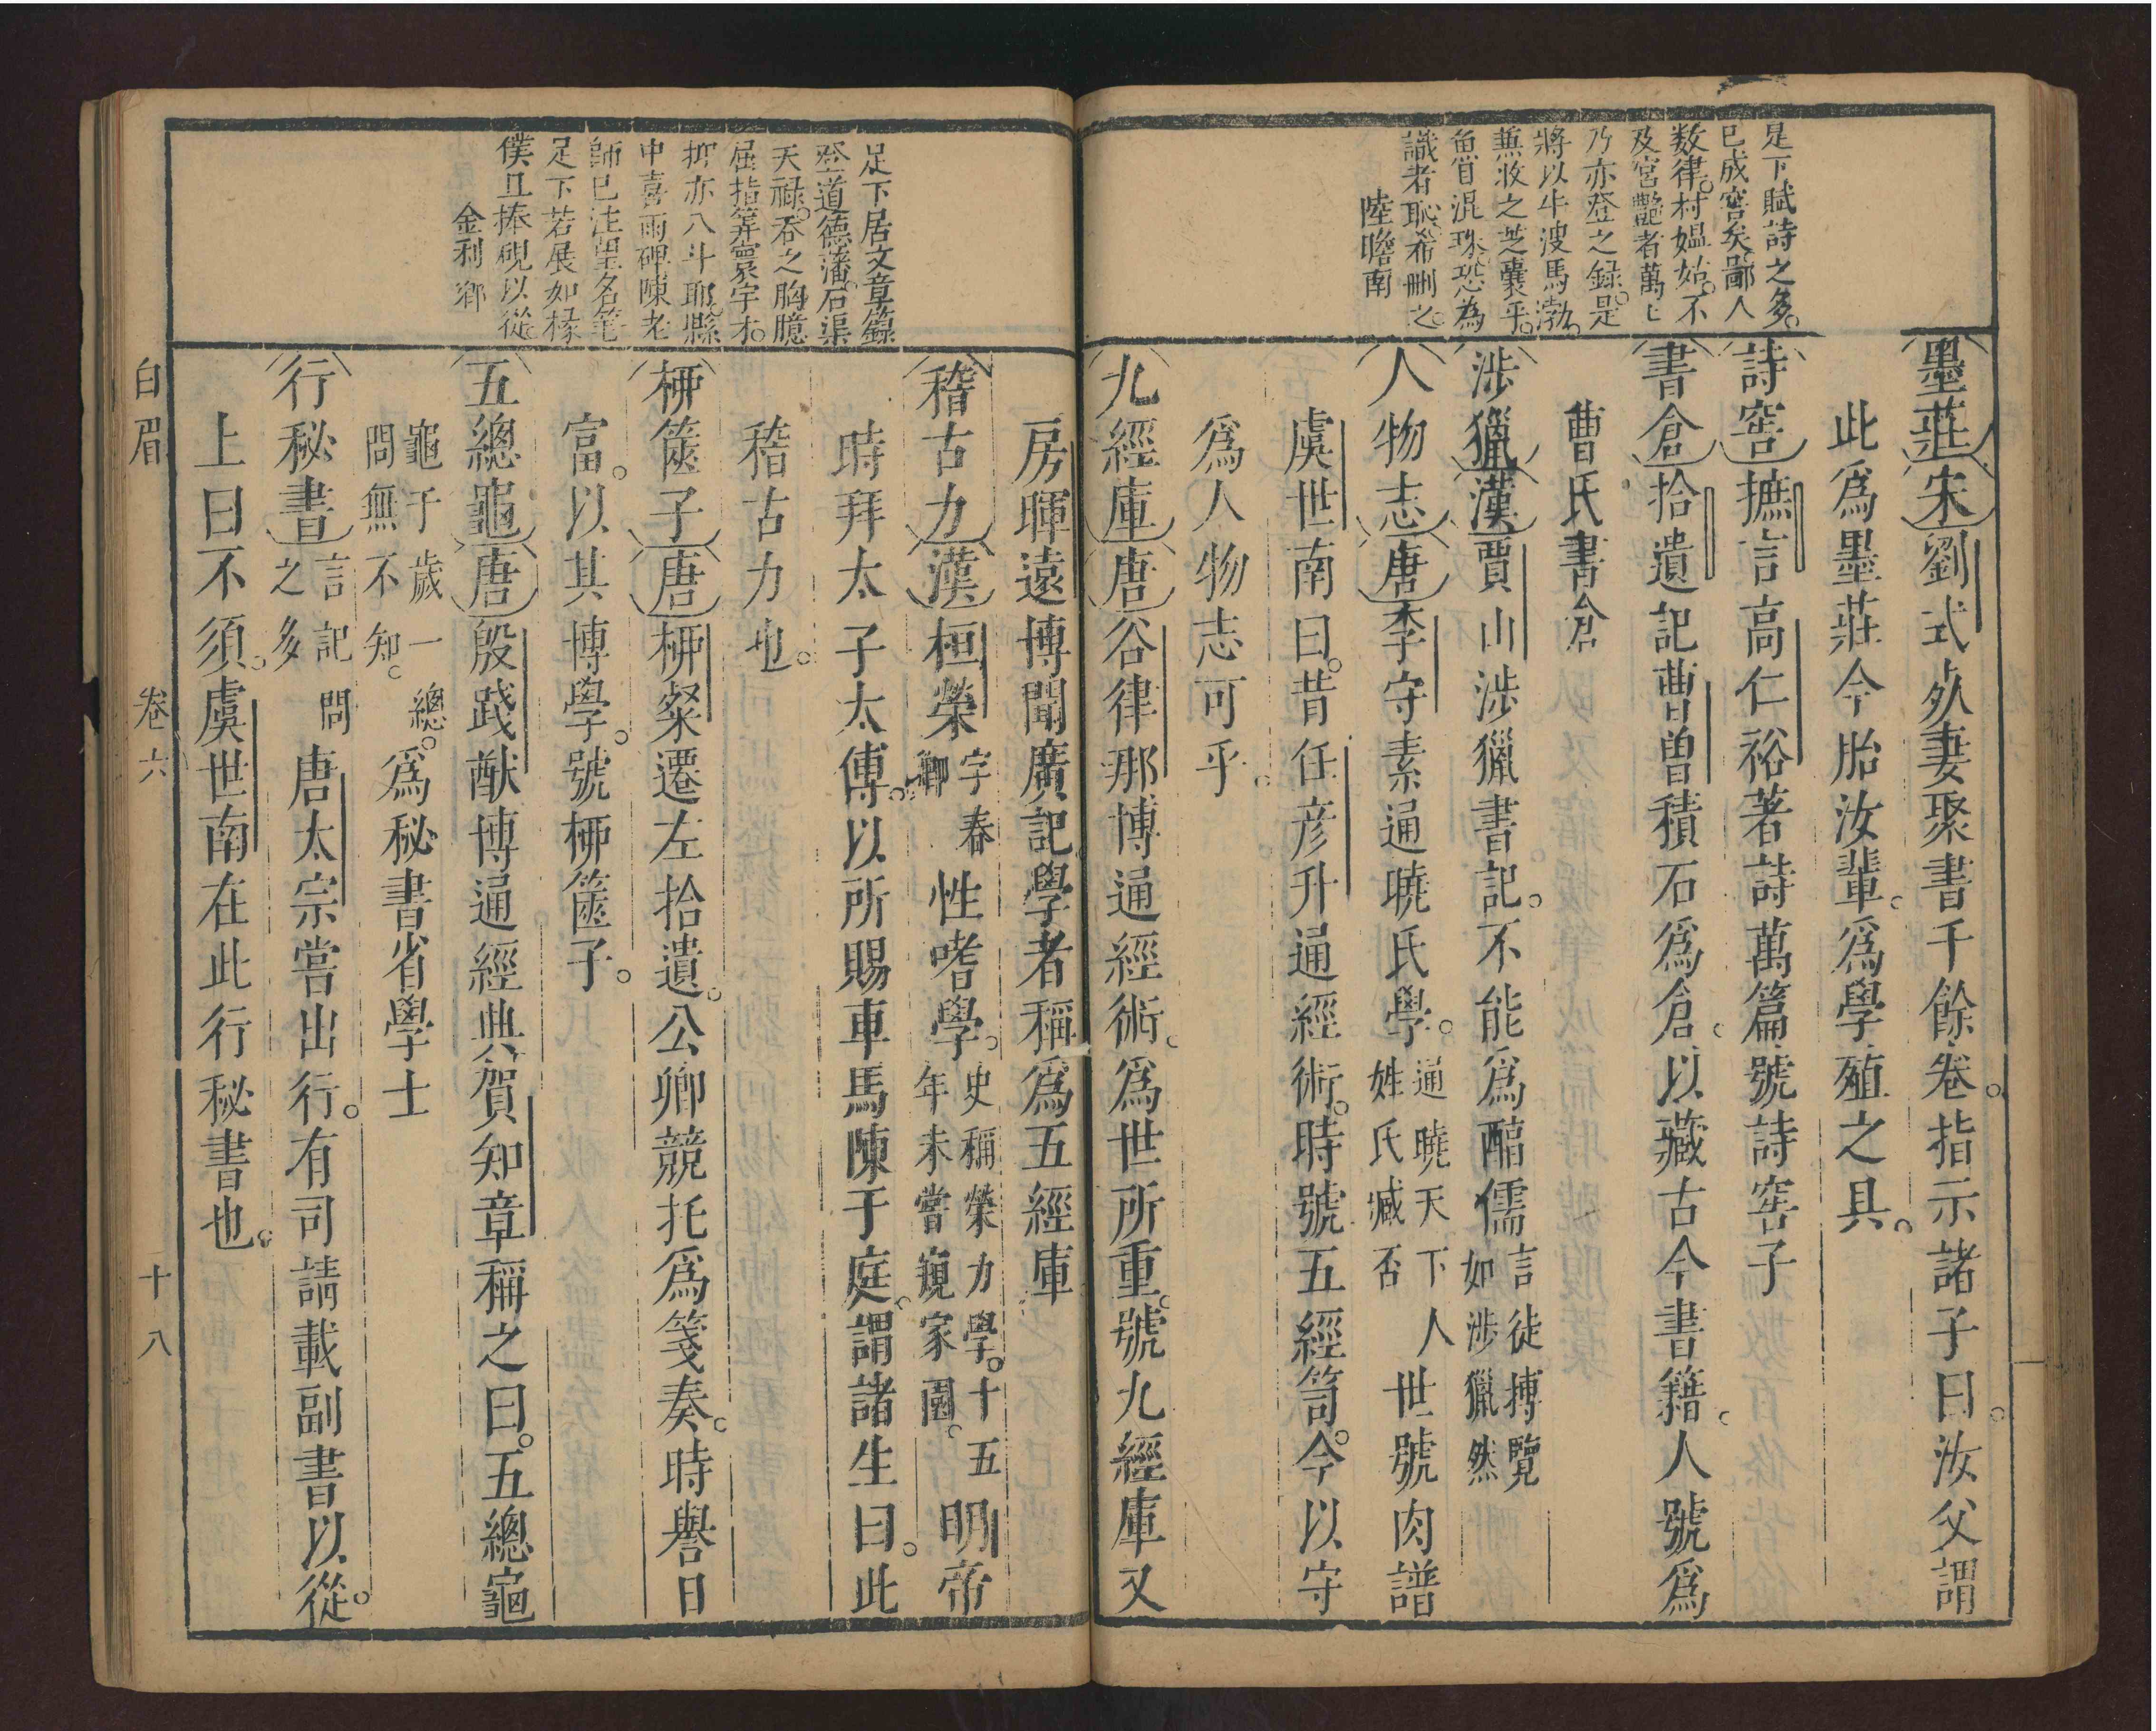 是下賦詩之多。
已成窖矣鄙人
数律。村媼姑。不
及宮艷者萬七
乃亦登之録。是
將以牛溲馬渤。
兼收之芝囊乎。
魚目混珠。恐為
識者恥。希刪之。
陸瞻南
墨莊宋劉式歿妻聚書千餘卷。指示諸子曰。汝父謂
此爲墨莊今胎汝輩。爲學殖之具。
詩窖摭言高仁裕著詩萬篇號詩窖子
書倉拾遺記曹曾積石爲倉。以藏古今書籍。人號爲
曹氏書倉
涉獵漢賈山涉獵書記。不能爲醕儒言徒搏覽如涉獵然
人物志唐李守素通曉氏學。通曉天下人姓氏臧否世號肉譜
虞世南曰。昔任彥升通經術。時號五經笥。今以守
爲人物志可乎。
九經庫唐谷律那博通經術。爲世所重。號九經庫又
足下居文章籙
登道德藩。石渠
天禄。吞之胸臆
屈指筭寰宇才。
抑亦八斗耶。縣
中喜雨碑陳老
師已注望名笔
足下若展如椽
僕且捧硯以從
金利鄉
房暉遠博聞廣記學者稱爲五經庫
稽古力漢桓榮字春卿性嗜學。史稱榮力學。十五年未嘗窺家園。明帝
時拜太子太傅。以所賜車馬陳于庭。謂諸生曰。此
稽古力也。
柳篋子唐柳璨遷左拾遺。公卿競托爲箋奏。時譽日
富。以其博學。號柳篋子。
五總龜唐殷踐猷博通經典賀知章稱之曰。五總龜
龜千歲一總。問無不知。爲秘書省學士
行秘書言記問之多唐太宗嘗出行。有司請載副書以從。
上曰不須。虞世南在此行秘書也。
白眉 卷六 十八